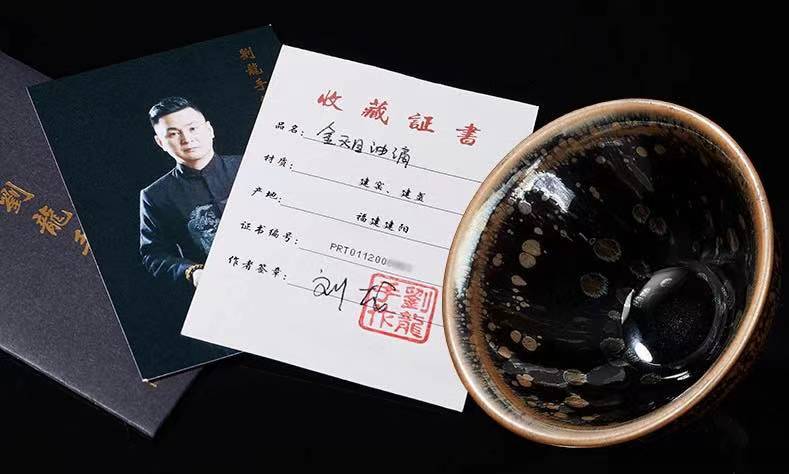 劉龍手
劉龍手
收藏証書
品名: 金天目油滴
材质: 建窑、建盏
产地: 福建建阳
证书编号: PRT011200
作者签章: 刘龙
劉龍手作